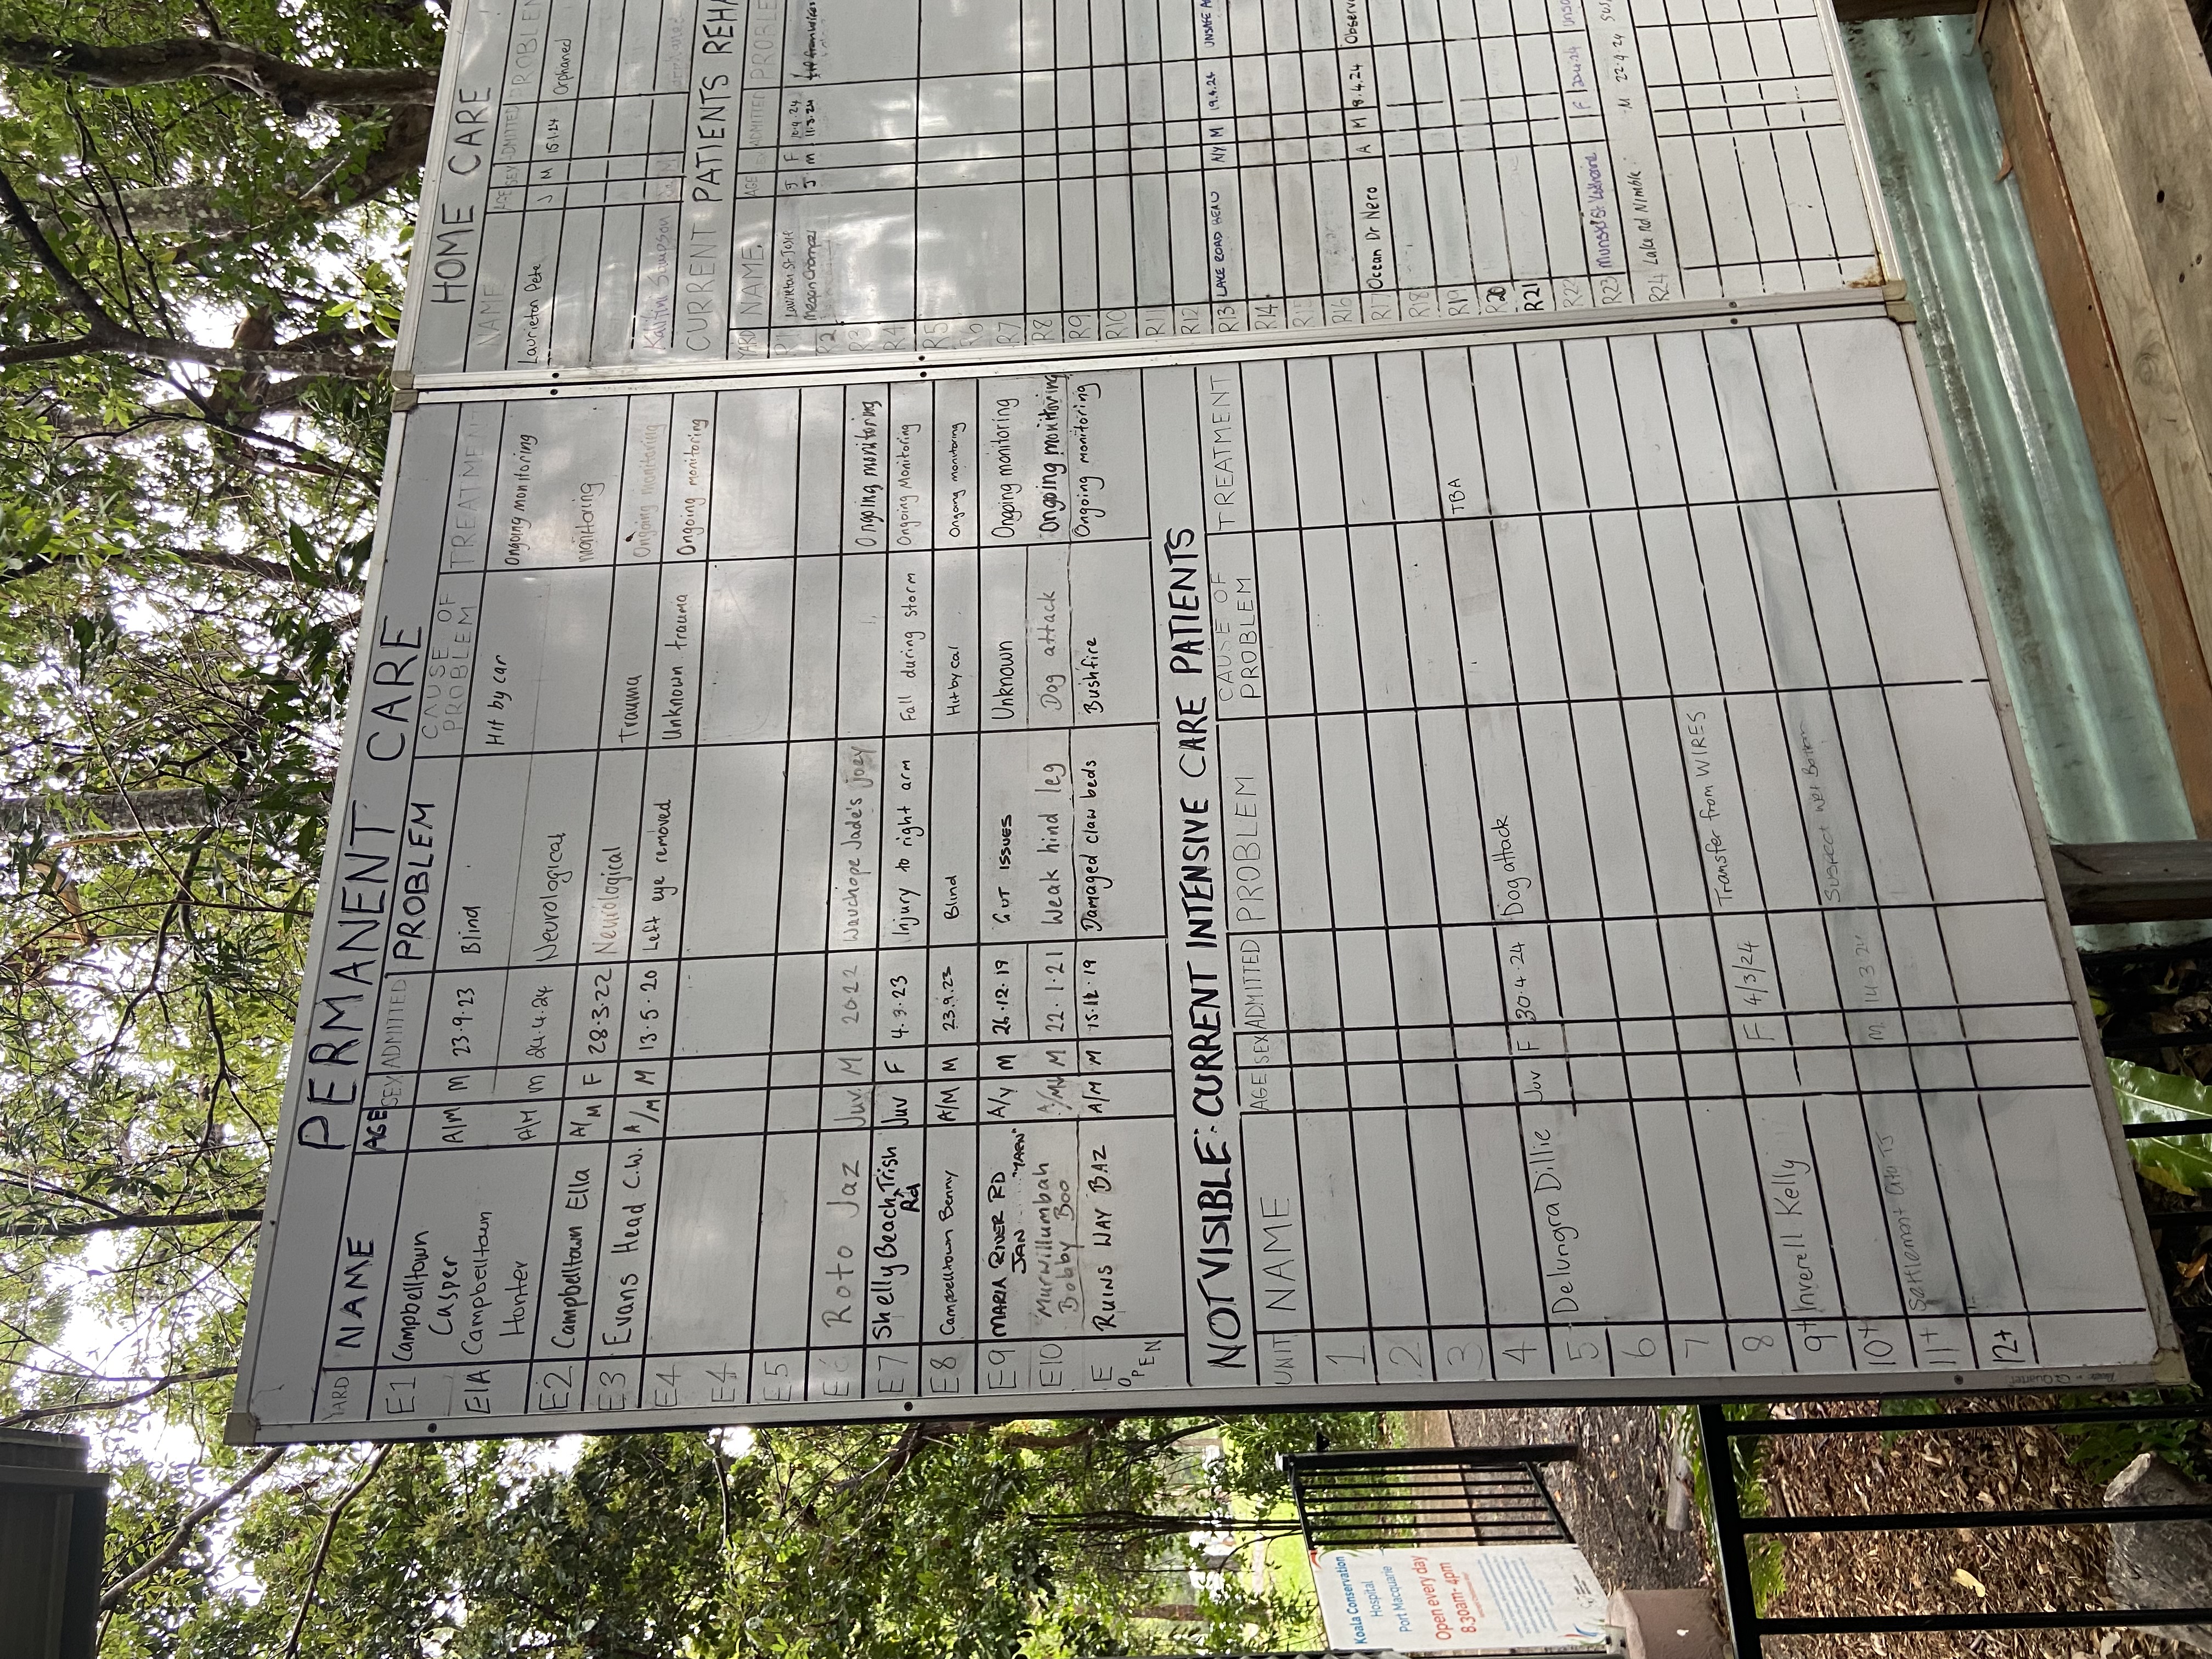 PERMANENT CARE
YARD NAME AGE SEX ADMITTED PROBLEM CAUSE OF PROBLEM TREATMENT
E1 Campbelltown Casper A/M M 23.9.23 Blind Hit by car Ongoing monitoring
E1A Campbelltown Hunter A/M M 24.4.24 Neurological monitoring
E2 Campbelltown Ella A/M F 28.3.22 Neurological Trauma Ongoing monitoring
E3 Evans Head C.W. A/M M 13.5.20 Left eye removed Unknown trauma Ongoing monitoring
E4
E4
E5
E6 Roto Jaz Juv. M 2022 Wauchope Jade's joey Ongoing monitoring
E7 Shelly Beach Rd Trish Juv F 4.3.23 Injury to right arm Fall during storm Ongoing Monitoring
E8 Campbelltown Benny A/M M 23.9.23 Blind Hit by car Ongoing monitoring
E9 MARIA RIVER RD JAN "YARN" A/Y M 26.12.19 GUT ISSUES Unknown Ongoing monitoring
E10 Murwillumbah Bobby Boo M 22.1.21 Weak hind leg Dog attack Ongoing monitoring
E OPEN RUINS WAY BAZ A/M M 15.12.19 Damaged claw beds Bushfire Ongoing monitoring
NOT VISIBLE: CURRENT INTENSIVE CARE PATIENTS
UNIT NAME AGE SEX ADMITTED PROBLEM CAUSE OF PROBLEM TREATMENT
1
2
3
4
5 Delungra Dillie Juv F 30.4.24 Dog attack TBA
6
7
8
9+ Inverell Kelly F 4/3/24 Transfer from WIRES
10+
11+ Settlement City TJ M 14.3.24 Suspect Wet Bottom
12+
HOME CARE
NAME AGE SEX ADMITTED PROBLEM
Laurieton Pete J M 15.1.24 Orphaned
Sampson M orphaned
CURRENT PATIENTS REHA
YARD NAME AGE SEX ADMITTED PROBLE
R1 Laurieton St Josie J F 10.4.24
Megan Chomper J M 11.3.24
R2
R3
R4
R5
R6
R7
R8
R9
R10
R11
R12
R13 LAKE ROAD BEAU A/Y M 19.4.24 UNSAFE
R14
R15
R16
R17 Ocean Dr Nero A M 8.4.24 Observ
R18
R19
R20
R21
R22
R23 Munster St Katherine F
R24 Lake Rd Nimble M 22.4.24
Koala Conservation
Hospital
Port Macquarie
Open every day
8.30am- 4pm